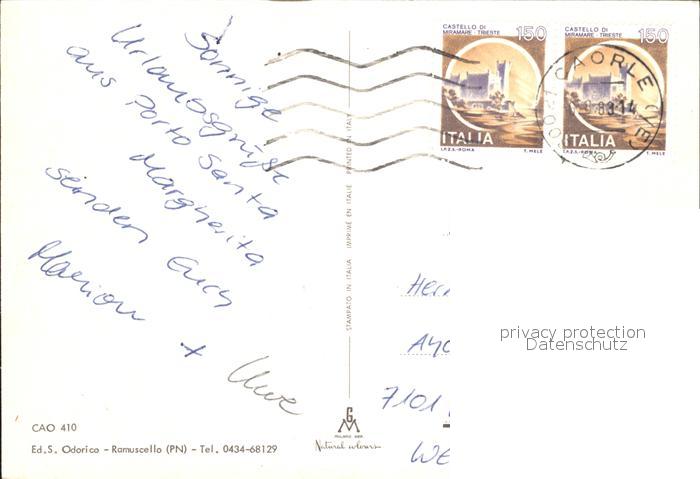 Sonnige
Urlaubsgrüße
aus Porto Santa
Margherita
senden Euch
Marion
+ Uwe
CASTELLO DI
MIRAMARE - TRIESTE
150
ITALIA
I.P.Z.S. - ROMA
T. MELE
CASTELLO DI
MIRAMARE - TRIESTE
150
ITALIA
I.P.Z.S. - ROMA
T. MELE
CAORLE (VE)
STAMPATO IN ITALIA IMPRIMÉ EN ITALIE PRINTED IN ITALY
Her
7101
WE
privacy protection
Datenschutz
CAO 410
Ed. S. Odorico - Ramuscello (PN) - Tel. 0434-68129
G
M
Natural colours